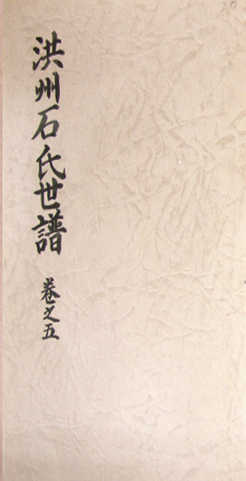 洪州石氏世譜
卷之五
20